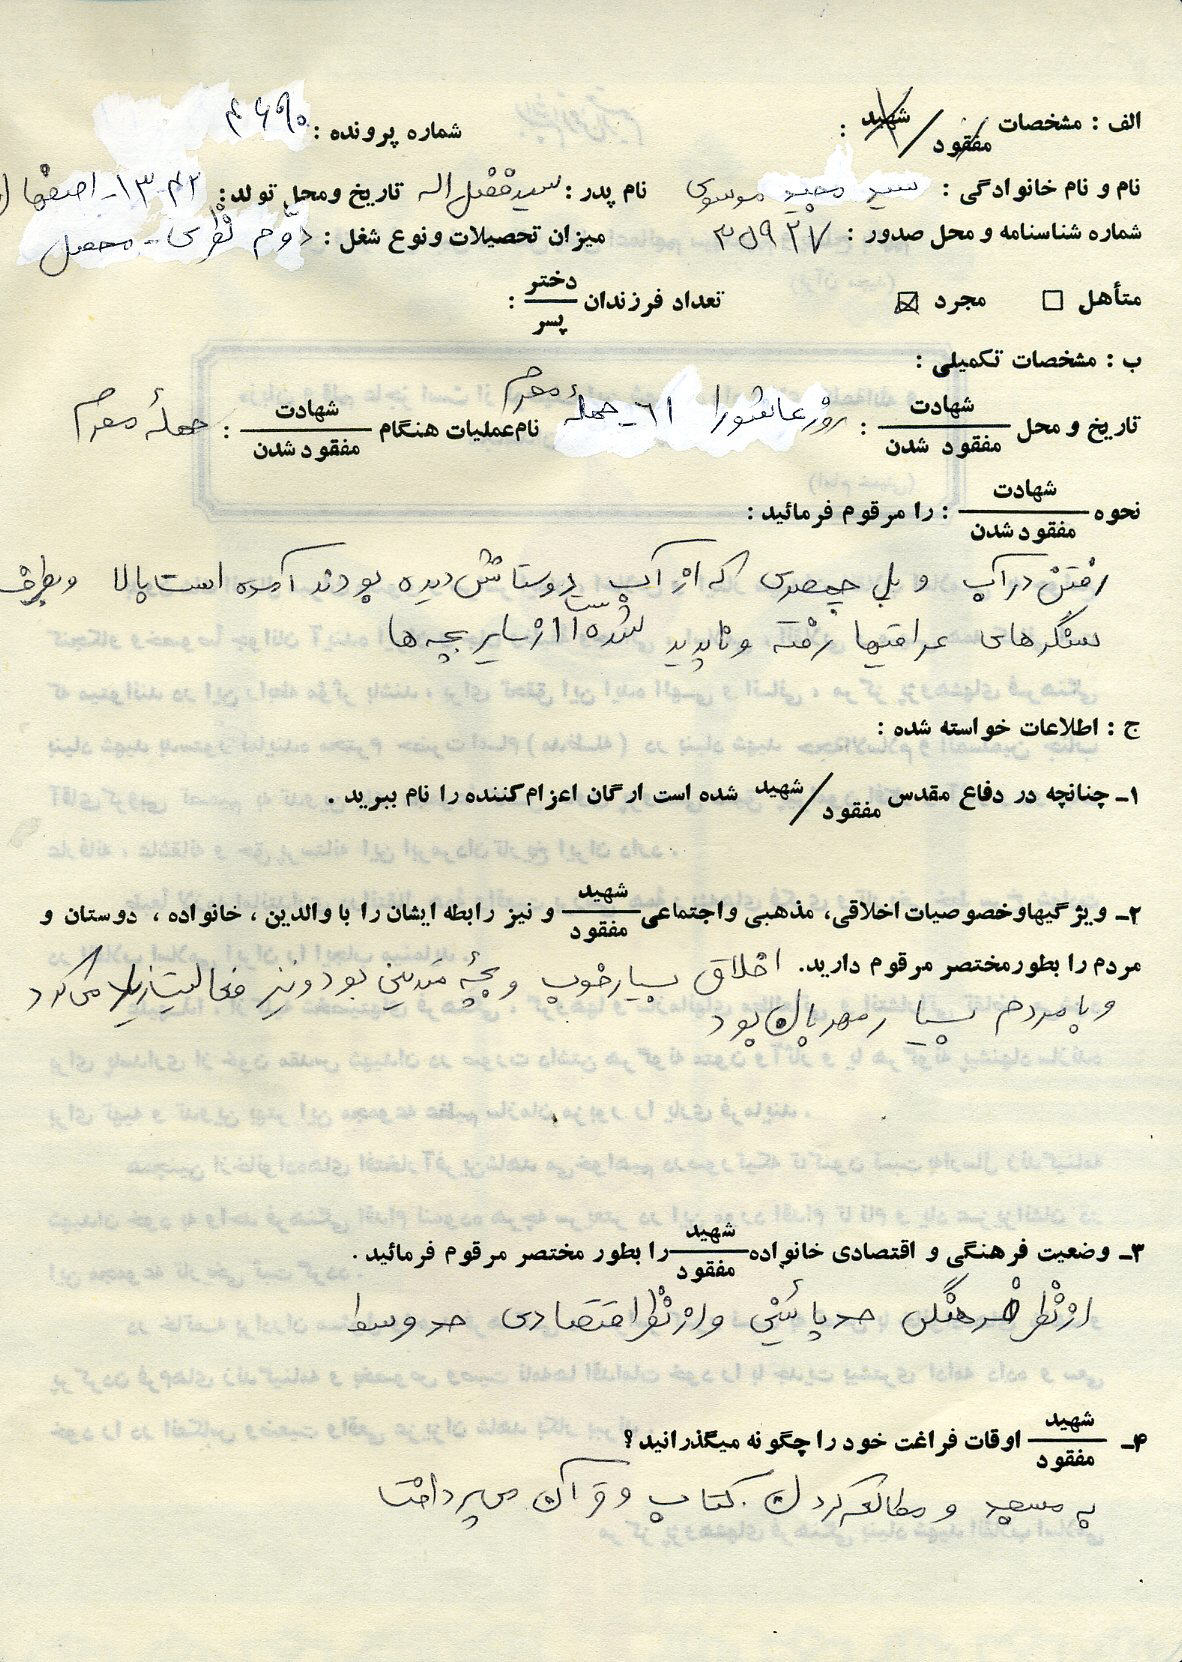 الف : مشخصات شهید / مفقود : شماره پرونده : ۴۶۹۰
نام و نام خانوادگی : سید مجید موسوی نام پدر : سید فضل اله تاریخ ومحل تولد : ۱۳۴۲ - اصفهان
شماره شناسنامه و محل صدور : میزان تحصیلات ونوع شغل : دوم نظری - محصل
متأهل ☐ مجرد ☒ تعداد فرزندان دختر / پسر :
ب : مشخصات تکمیلی :
تاریخ و محل شهادت / مفقود شدن : روز عاشورا ٦١ - حملهٔ محرم نام عملیات هنگام شهادت / مفقود شدن : حملهٔ محرم
نحوه شهادت / مفقود شدن : را مرقوم فرمائید :
رفتن در آب و بلم چیصدری که از آب دوستانش دیده بودند آمده است بالا و بطرف
سنگرهای عراقیها رفته و ناپدید شده است از سایر بچه ها
ج : اطلاعات خواسته شده :
۱ـ چنانچه در دفاع مقدس شهید / مفقود شده است ارگان اعزام کننده را نام ببرید .
۲ـ ویژگیهاوخصوصیات اخلاقی، مذهبی واجتماعی شهید / مفقود و نیز رابطه ایشان را با والدین ، خانواده ، دوستان و
مردم را بطورمختصر مرقوم دارید. اخلاق بسیار خوب و بچهٔ متدینی بود و نیز فعالیت زیاد می کرد
و با مردم بسیار مهربان بود
۳ـ وضعیت فرهنگی و اقتصادی خانواده شهید / مفقود را بطور مختصر مرقوم فرمائید .
از نظر فرهنگی حد پائینی و از نظر اقتصادی حد وسط
۴ـ شهید / مفقود اوقات فراغت خود را چگونه میگذرانید ؟
به مسجد و مطالعه کردن کتاب و قرآن می پرداخت